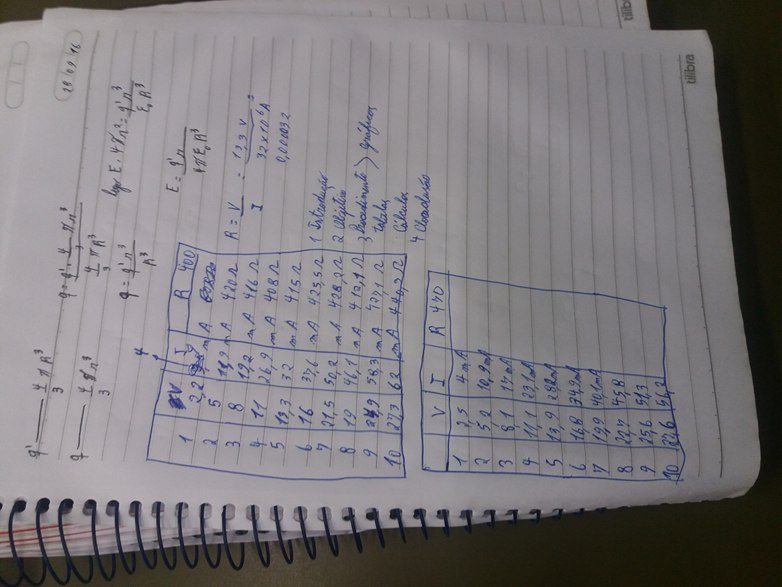 q' —— 4/3 π R³
q —— 4/3 π r³
q = q' · 4/3 π r³ / 4/3 π R³
q = q' r³ / R³
29/09/16
logo E · 4πr² = q' r³ / ε₀ R³
E = q' r / 4π ε₀ R³
4
V I R 400
1 2,2 mA
2 5 11,9 mA 420 Ω
3 8 19,2 mA 416 Ω
4 11 26,9 mA 408 Ω
5 13,3 32 mA 415 Ω
6 16 37,6 mA 425,5 Ω
7 21,5 50,2 mA 428,2 Ω
8 19 46,1 mA 412,1 Ω
9 24,9 58,3 mA 427,1 Ω
10 27,3 62 mA 440,3 Ω
R = V / I = 13,3 V / 32 x 10⁻⁶ A =
0,000032
1 Introdução
2 Objetivo
3 Procedimento > gráficos
tabelas
Cálculos
4 Conclusão
V I R 470
1 2,5 4 mA
2 5,2 10,9 mA
3 8,1 17 mA
4 11,1 23,1 mA
5 13,9 29,2 mA
6 16,8 34,9 mA
7 19,9 40,1 mA
8 22,7 45,8
9 25,6 51,3
10 27,6 56,2
tilibra
tilib